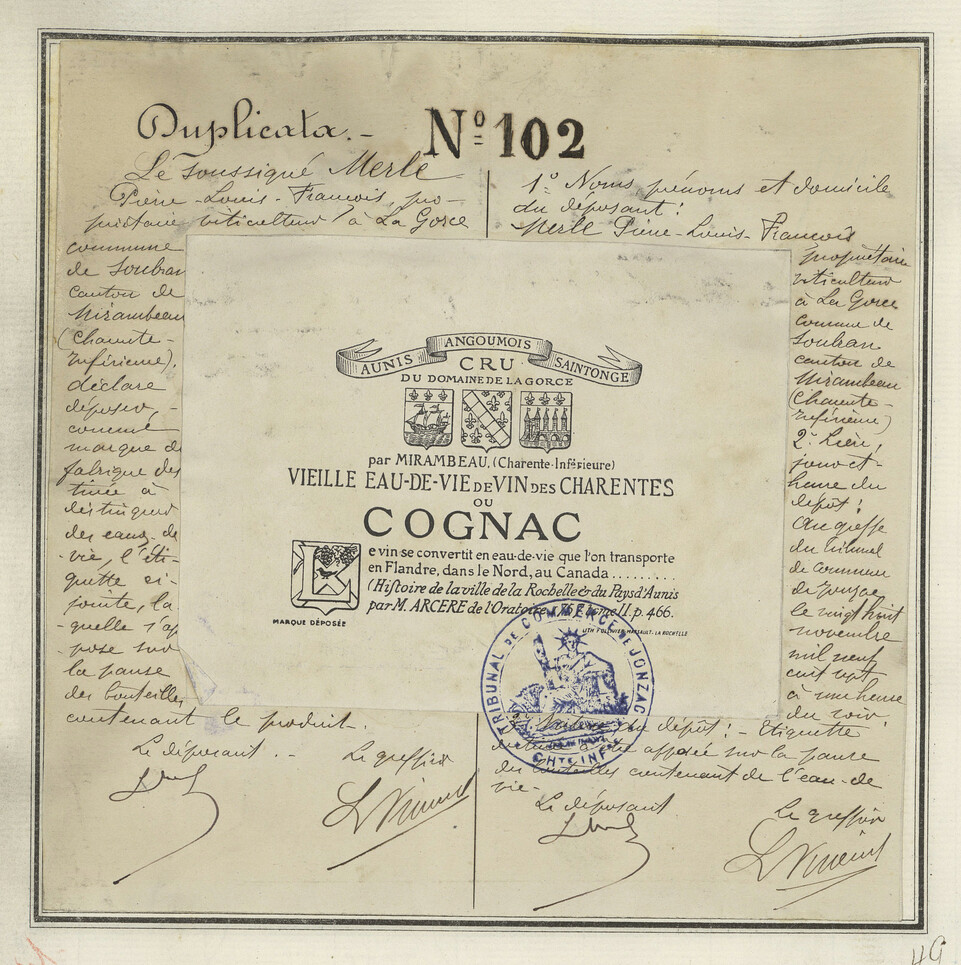 Duplicata. - Nº 102
Le soussigné Merle
Pierre-Louis-François, pro-
priétaire viticulteur à La Gorce
commune
de Soubran
canton de
Mirambeau
(Charente-
Inférieure),
déclare
déposer, -
comme
marque de
fabrique des
tinée à
distinguer
des eaux-de
-vie, l'éti-
quette ci-
jointe, la
quelle s'ap
pose sur
la panse
des bouteilles
contenant le produit.
Le déposant.
Le greffier
L Vincent
1º Noms, prénoms et domicile
du déposant :
Merle Pierre-Louis-François
propriétaire
viticulteur
à La Gorce
commune de
Soubran
canton de
Mirambeau
(Charente-
Inférieure)
2º Lieu,
jour et
heure du
dépôt :
Au greffe
du Tribunal
de commerce
de Jonzac
le vingt huit
novembre
mil neuf
cent sept
à une heure
du soir.
du dépôt : - Etiquette
apposée sur la panse
des bouteilles contenant de l'eau-de
vie-
Le déposant
Le greffier
L Vincent
AUNIS ANGOUMOIS SAINTONGE
CRU
DU DOMAINE DE LAGORCE
par MIRAMBEAU, (Charente-Inférieure)
VIEILLE EAU-DE-VIE DE VIN DES CHARENTES
OU
COGNAC
Le vin se convertit en eau-de-vie que l'on transporte
en Flandre, dans le Nord, au Canada .........
(Histoire de la ville de la Rochelle & du Pays d'Aunis
par M. ARCERE de l'Oratoire, tome II, p. 466.
MARQUE DÉPOSÉE
LITH LA ROCHELLE
TRIBUNAL DE COMMERCE DE JONZAC
CHTE INFRE
49